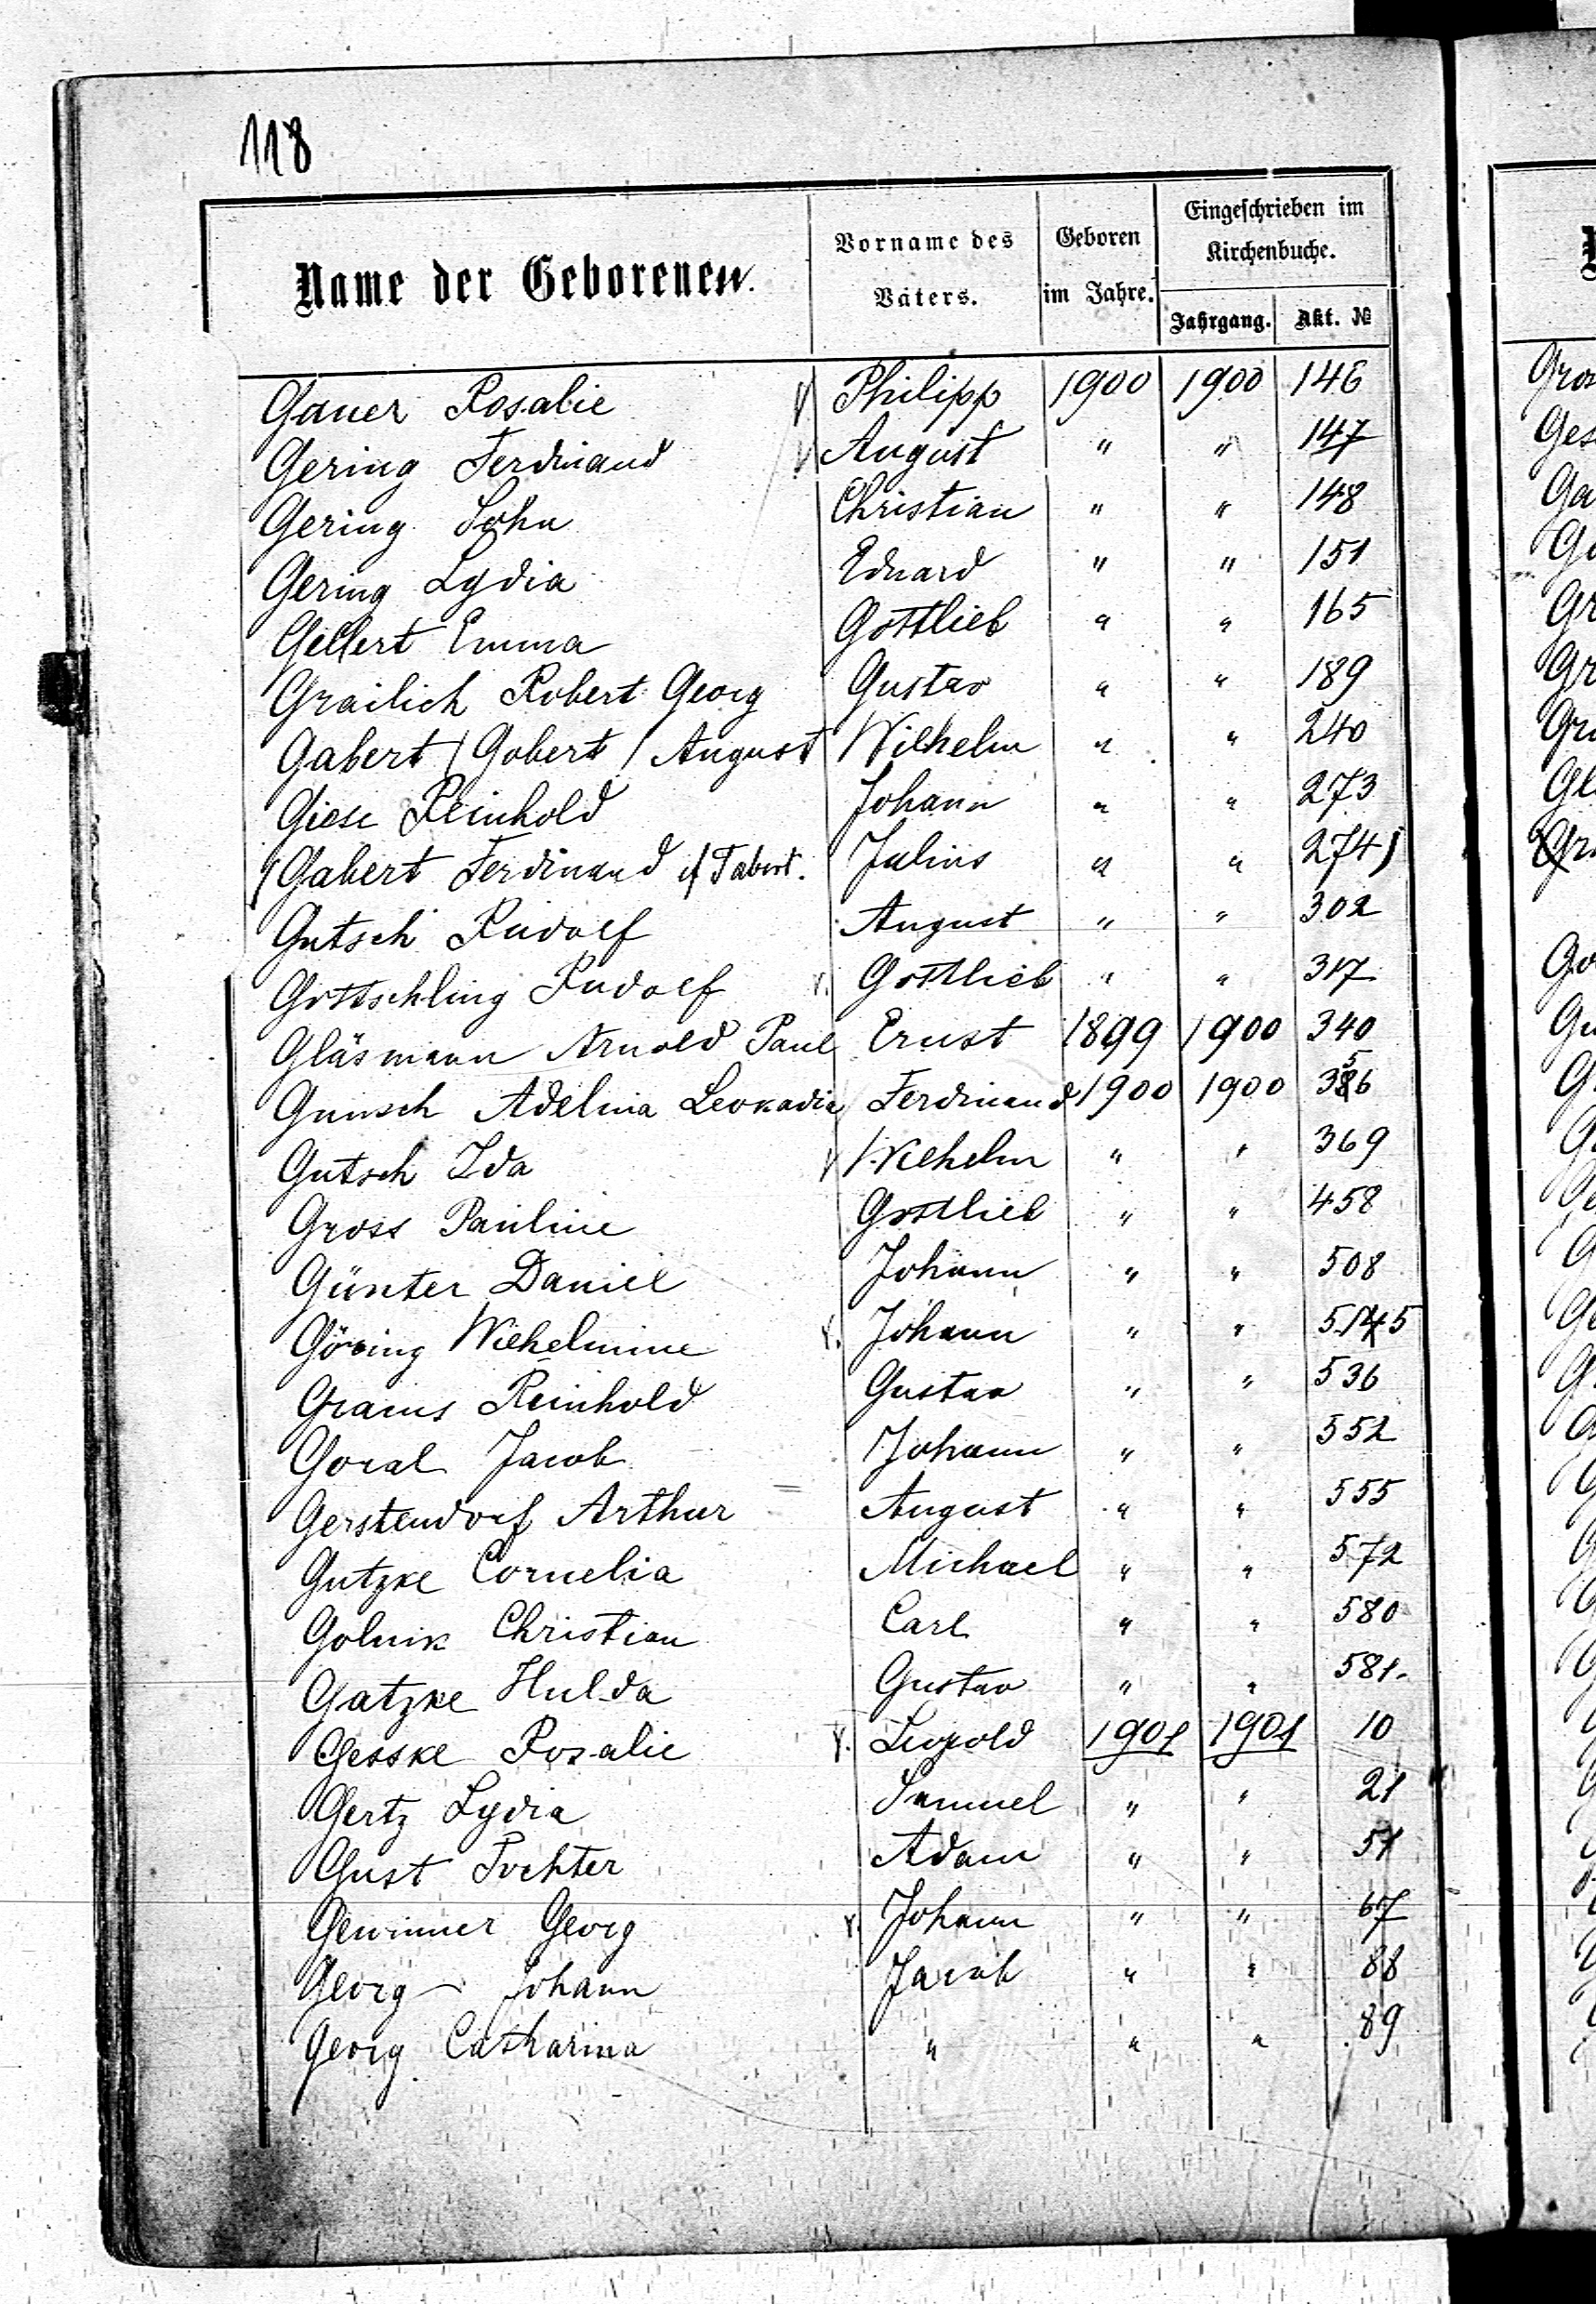 118
Name der Geborenen. Vorname des Vaters. Geboren im Jahre. Eingeschrieben im Kirchenbuche. Jahrgang. Akt. №
Gauer Rosalie Philipp 1900 1900 146
Gering Ferdinand August " " 147
Gering Sohn Christian " " 148
Gering Lydia Eduard " " 151
Gellert Emma Gottlieb " " 165
Grailich Robert Georg Gustav " " 189
Gabert / Gobert / August Wilhelm " " 240
Giese Reinhold Johann " " 273
(Gabert Ferdinand cf Tabert. Julius " " 274)
Gutsch Rudolf August " " 302
Gottschling Rudolf Gottlieb " " 317
Gläsmann Arnold Paul Ernst 1899 1900 340
Gunsch Adelina Leokadia Ferdinand 1900 1900 356
Gutsch Ida Wilhelm " " 369
Gross Pauline Gottlieb " " 458
Günter Daniel Johann " " 508
Göring Wilhelmine Johann " " 515
Grams Reinhold Gustav " " 536
Goral Jacob Johann " " 552
Gerstendorf Arthur August " " 555
Gutzke Cornelia Michael " " 572
Golnik Christian Carl " " 580
Gatzke Hulda Gustav " " 581.
Gesske Rosalie Leopold 1901 1901 10
Gertz Lydia Samuel " " 21
Gust Tochter Adam " " 51
Gewinner Georg Johann " " 67
Georg Johann Jacob " " 88
Georg Catharina " " " 89